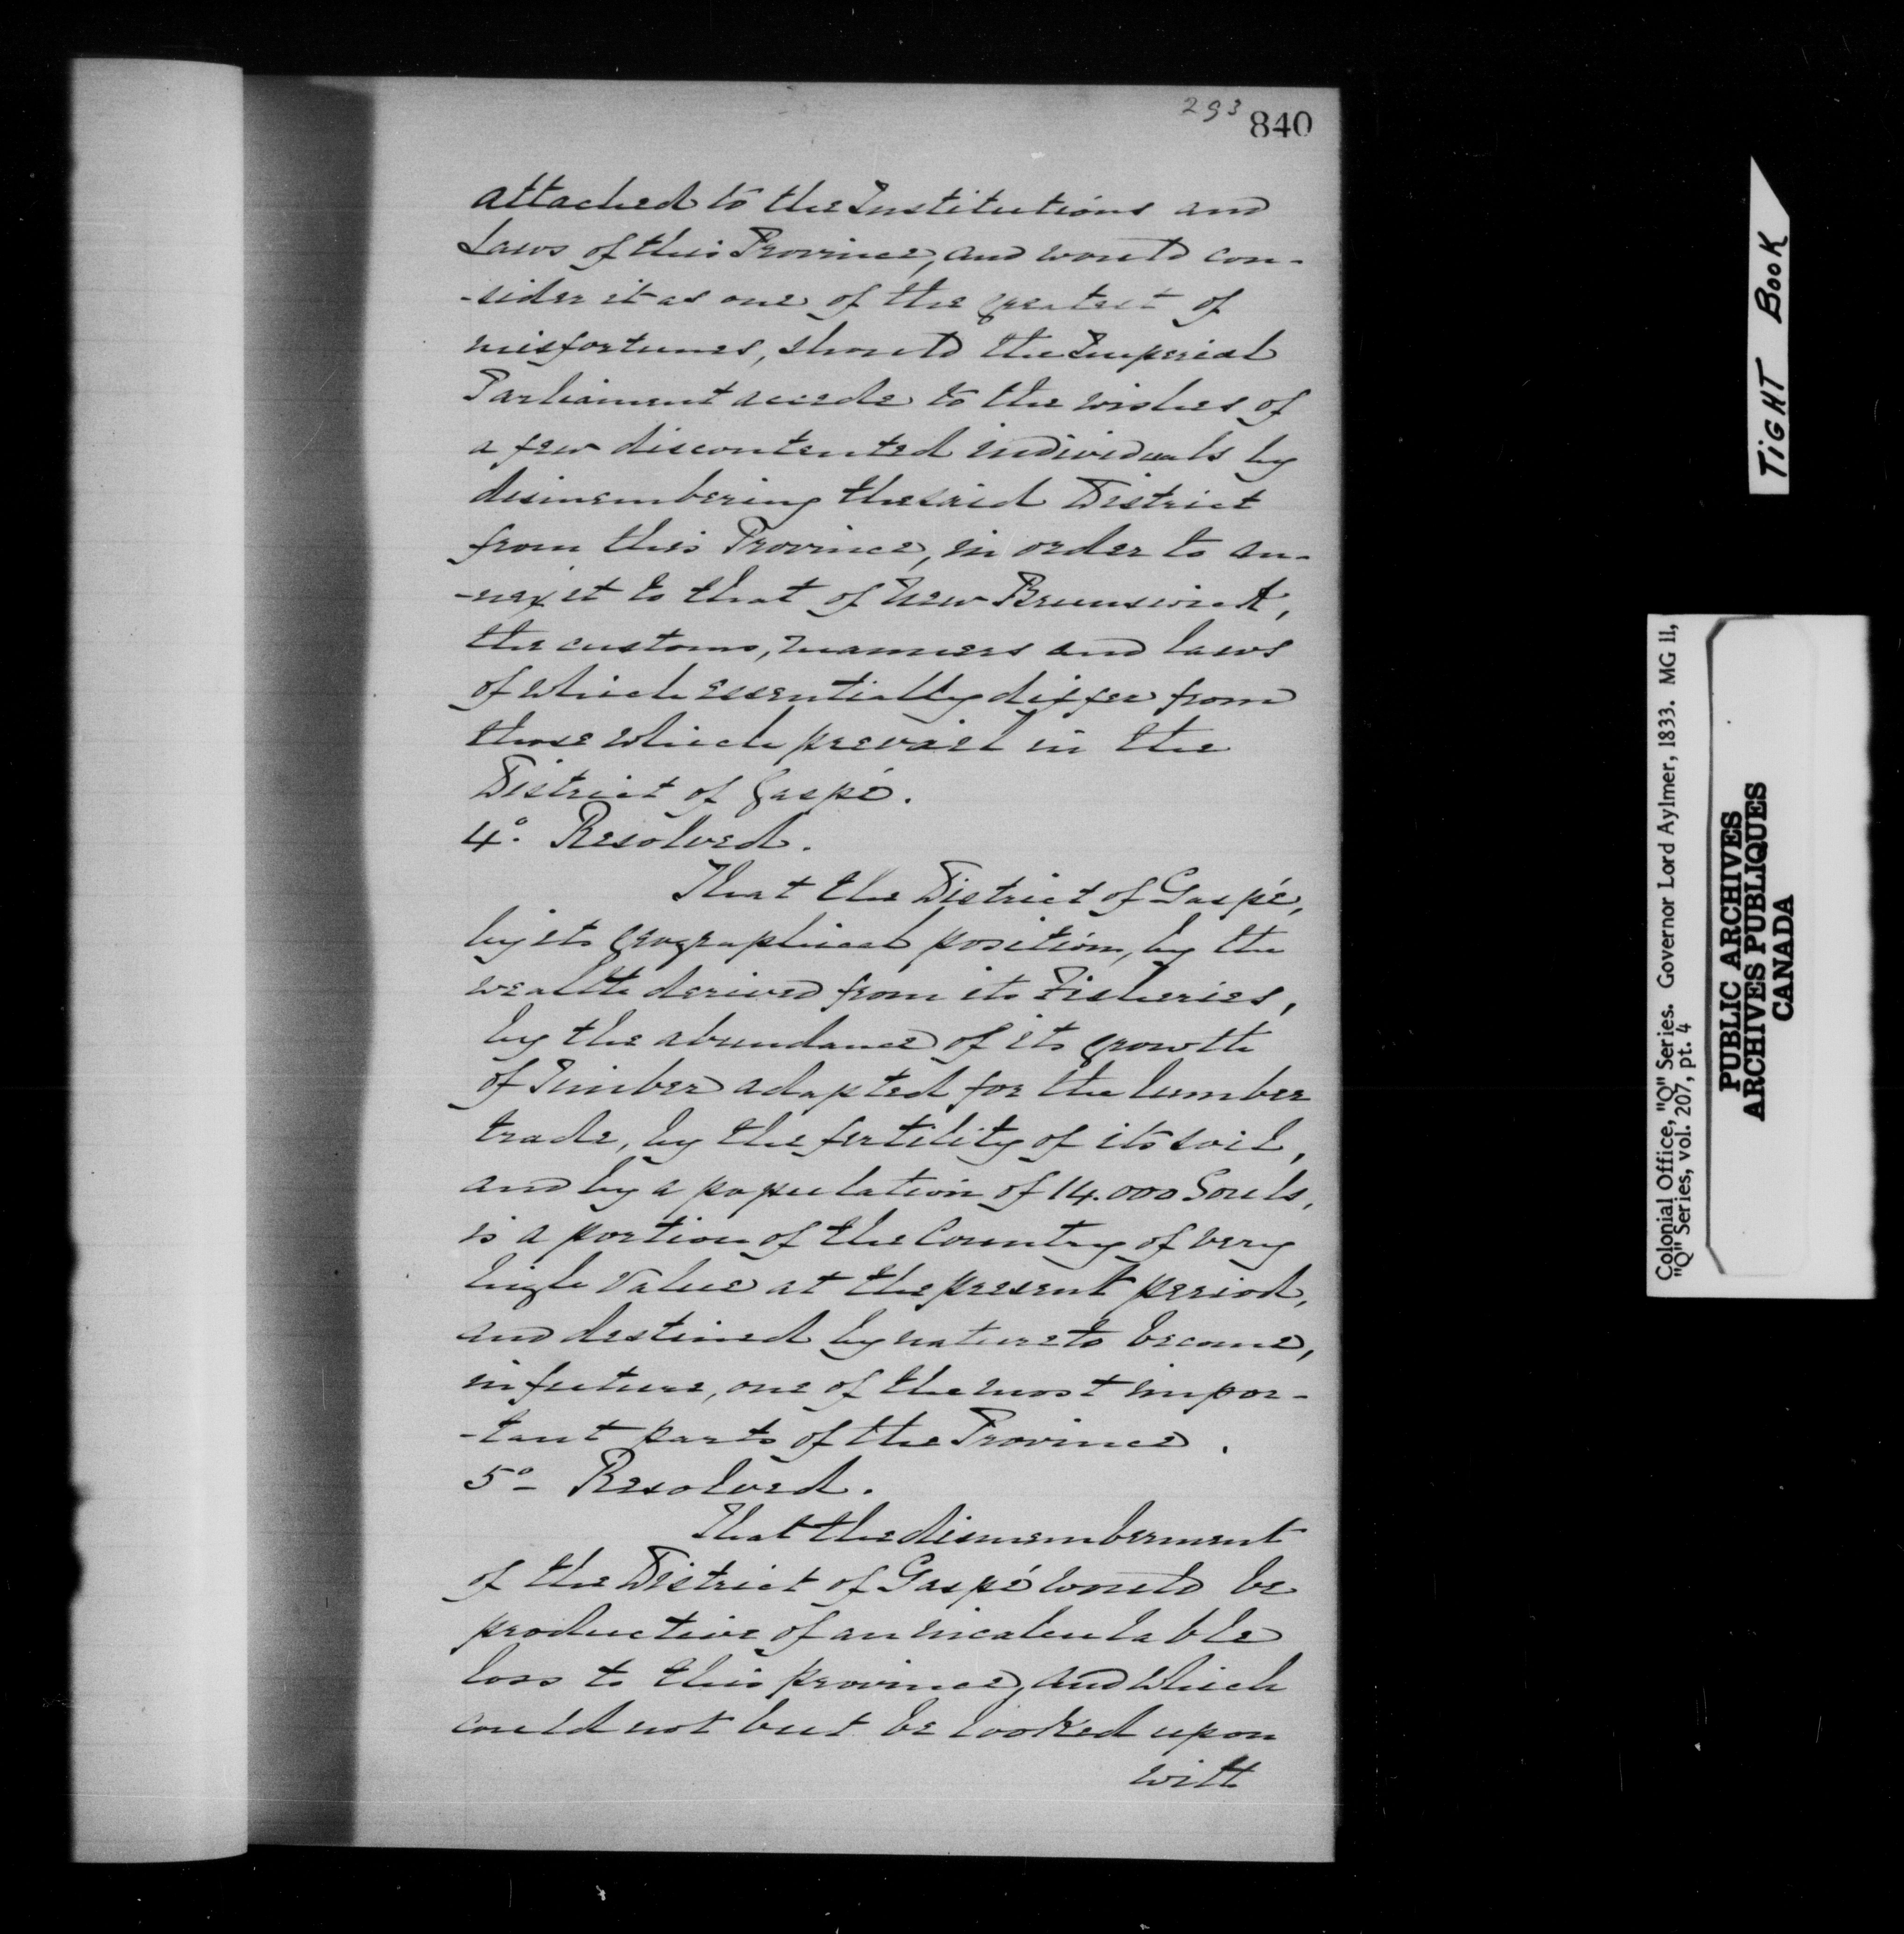 293
840
attached to the Institutions and
Laws of this Province, and would con-
-sider it as one of the greatest of
misfortunes, should the Imperial
Parliament accede to the wishes of
a few discontented individuals by
dismembering the said District
from this Province, in order to an-
-nex it to that of New Brunswick,
the customs, manners and laws
of which essentially differ from
those which prevail in the
District of Gaspé.
4º. Resolved.
That the District of Gaspé,
by its geographical position, by the
wealth derived from its Fisheries,
by the abundance of its growth
of Timber adapted for the lumber
trade, by the fertility of its soil,
and by a population of 14.000 Souls,
is a portion of the Country of very
high Value at the present period,
and destined by nature to become,
in future, one of the most impor-
-tant parts of the Province.
5º- Resolved.
That the dismemberment
of the District of Gaspé would be
productive of an incalculable
loss to this province, and which
could not but be looked upon
with
TIGHT BOOK
Colonial Office, "Q" Series. Governor Lord Aylmer, 1833. MG 11,
"Q" Series, vol. 207, pt. 4
PUBLIC ARCHIVES
ARCHIVES PUBLIQUES
CANADA